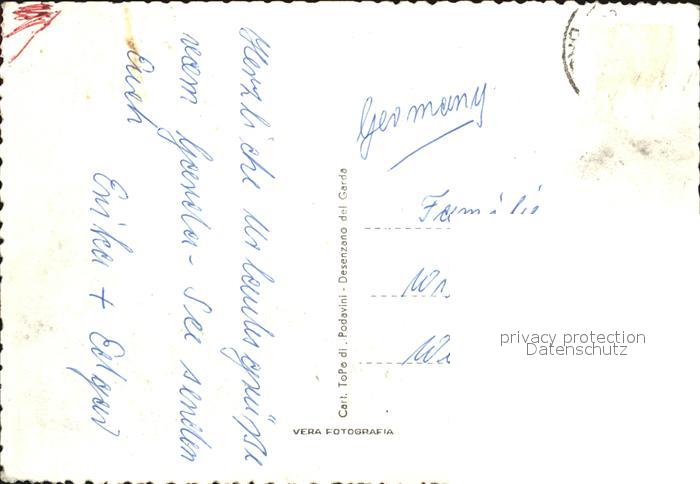 Herzliche Urlaubsgrüsse
vom Garda-See senden
Euch
Erika + Edgar
Cart. ToPo di. Podavini - Desenzano del Garda
VERA FOTOGRAFIA
Germany
Familie
privacy protection
Datenschutz